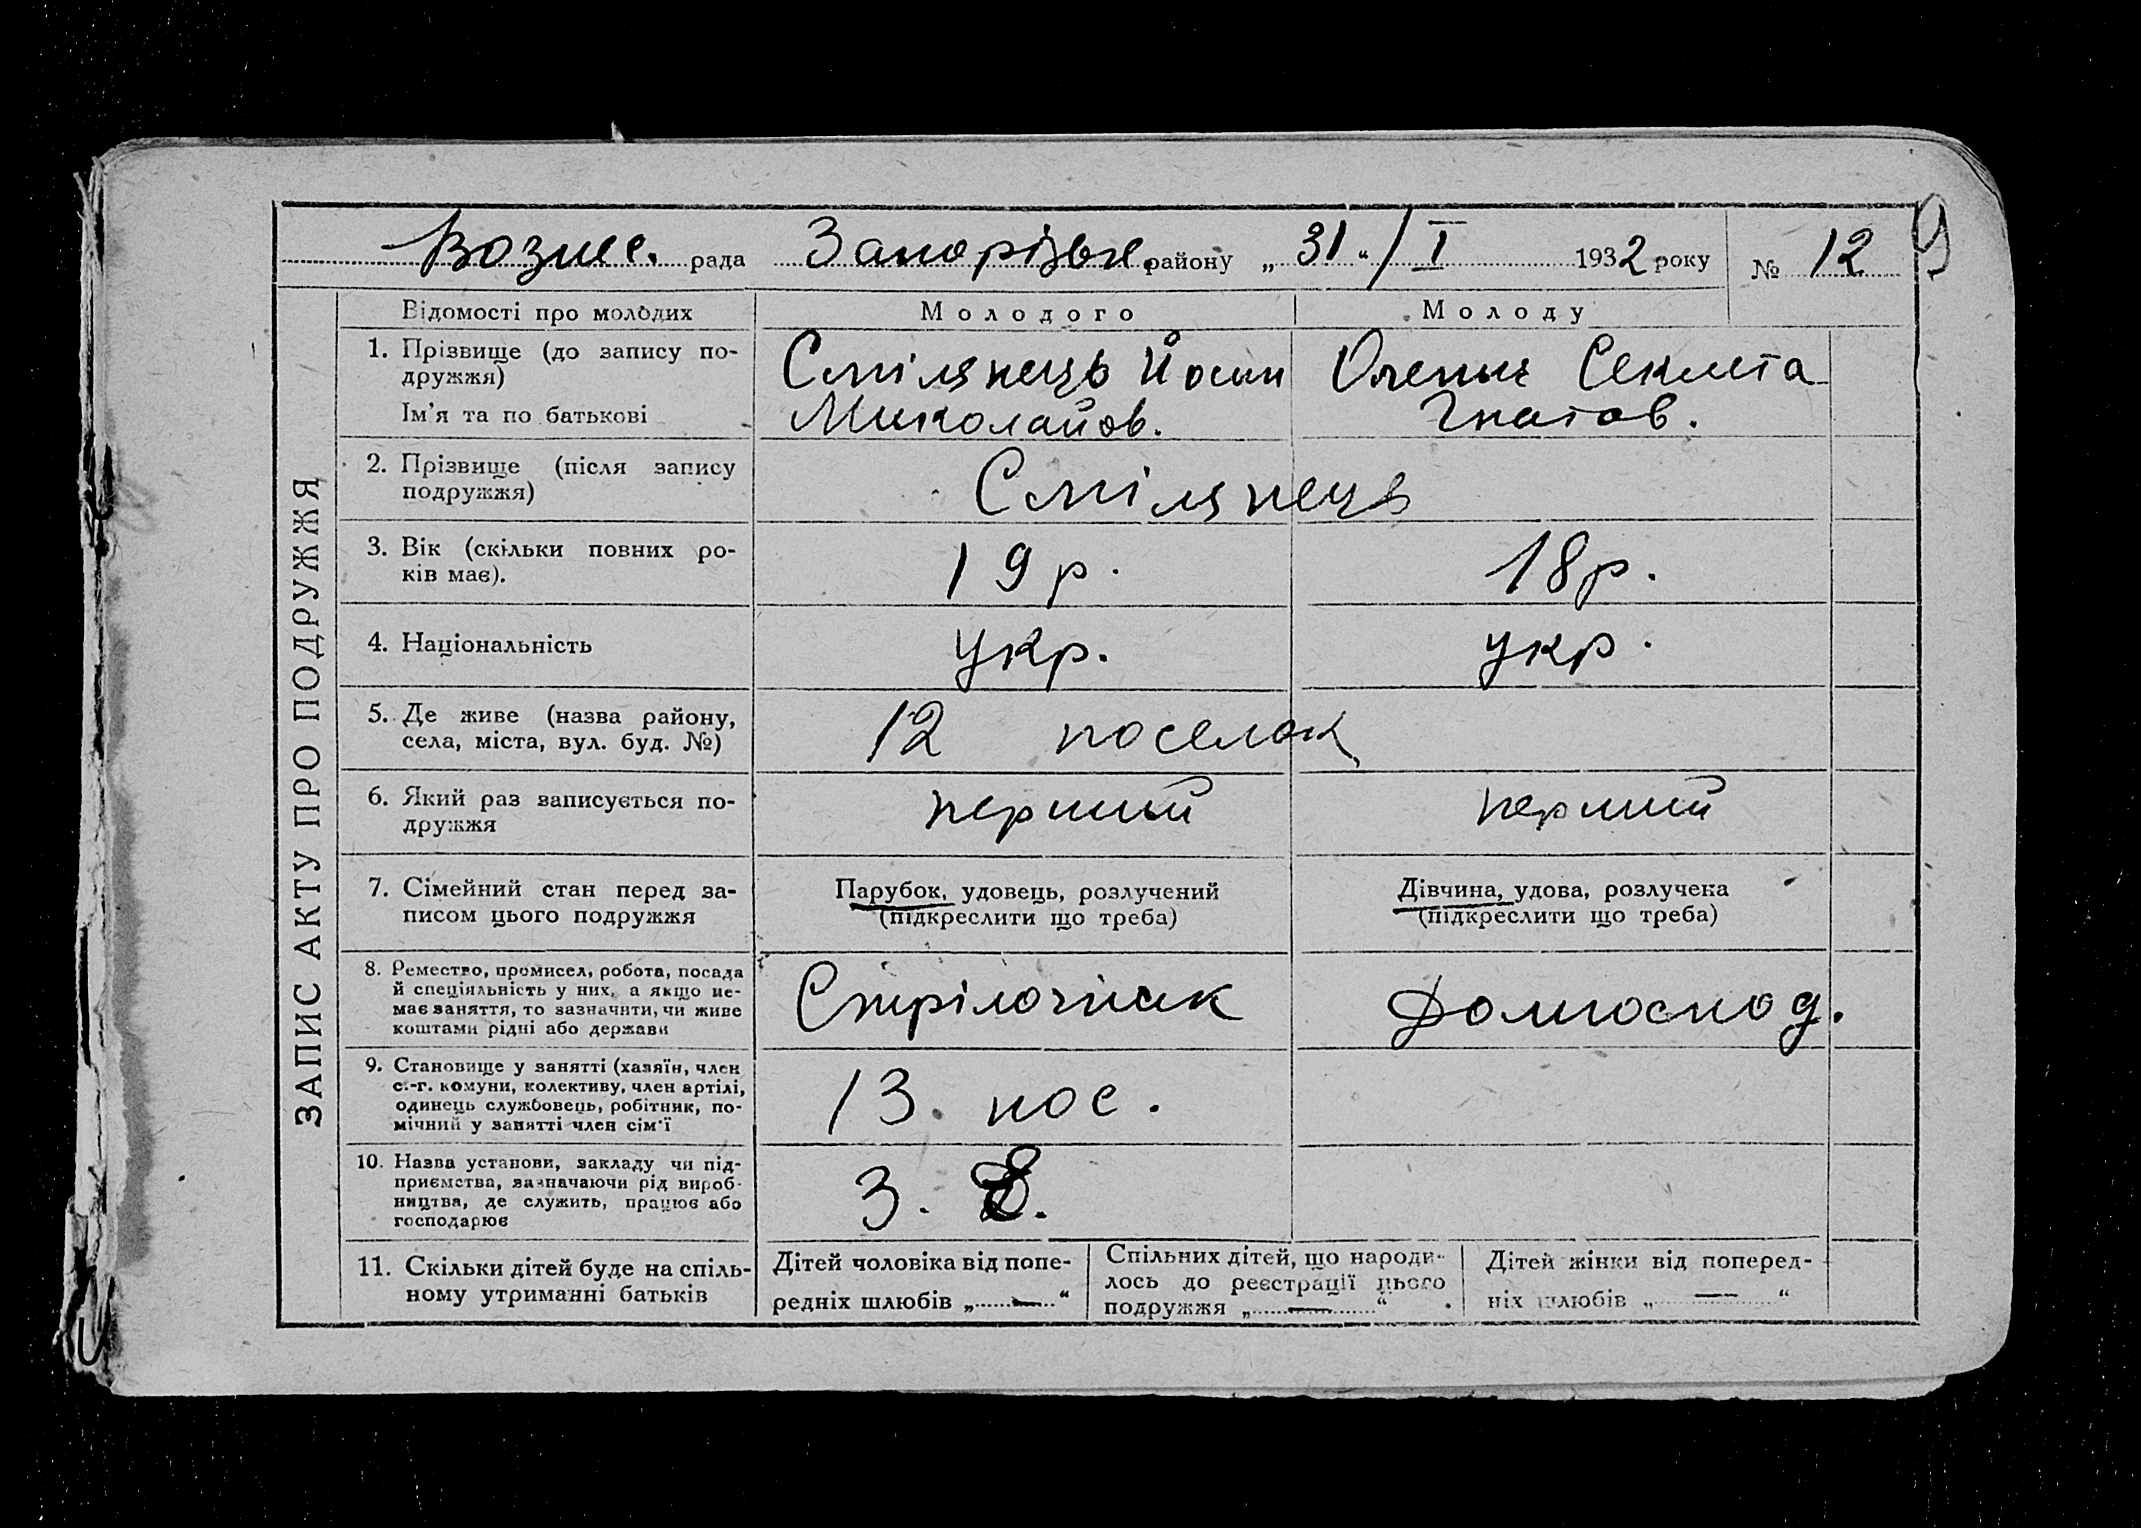 Вознес. рада Запорізьк. району „ 31 “ / I 1932 року № 12 9
ЗАПИС АКТУ ПРО ПОДРУЖЖЯ
Відомості про молодих Молодого Молоду
1. Прізвище (до запису по-
дружжя)
Ім’я та по батькові
Смілянець Йосип
Миколайов.
Олепич Секлета
Гнатов.
2. Прізвище (після запису
подружжя)
Смілянець
3. Вік (скільки повних ро-
ків має).
19 р. 18 р.
4. Національність укр. укр.
5. Де живе (назва району,
села, міста, вул. буд. №)
12 поселок
6. Який раз записується по-
дружжя
перший перший
7. Сімейний стан перед за-
писом цього подружжя
Парубок, удовець, розлучений
(підкреслити що треба)
Дівчина, удова, розлучена
(підкреслити що треба)
8. Ремество, промисел, робота, посада
й спеціяльність у них, а якщо не-
має заняття, то зазначити, чи живе
коштами рідні або держави
Стрілочник Домгоспод.
9. Становище у занятті (хазяїн, член
с.-г. комуни, колективу, член артілі,
одинець службовець, робітник, по-
мічний у занятті член сім’ї
13 пос.
10. Назва установи, закладу чи під-
приємства, зазначаючи рід вироб-
ництва, де служить, працює або
господарює
З. Е.
11. Скільки дітей буде на спіль-
ному утриманні батьків
Дітей чоловіка від попе-
редніх шлюбів „ — “
Спільних дітей, що народи-
лось до реєстрації цього
подружжя „ — “
Дітей жінки від поперед-
ніх шлюбів „ — “